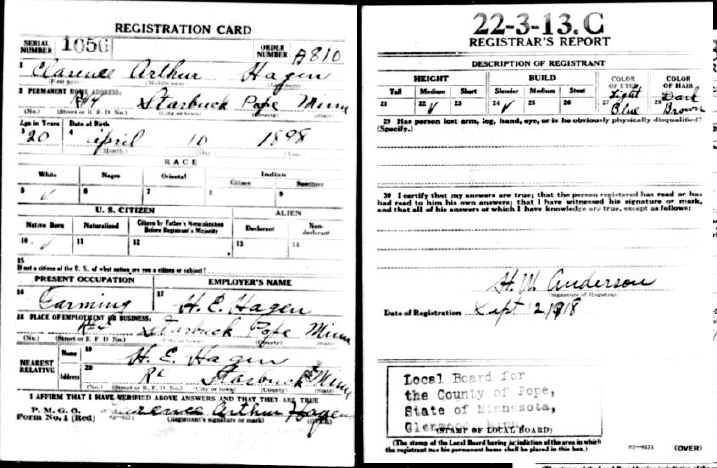 REGISTRATION CARD
SERIAL NUMBER 1656 ORDER NUMBER A810
1 Clarence Arthur Hagen
2 PERMANENT HOME ADDRESS:
Starbuck Pope Minn
(No.) (Street or R. F. D. No.) (City or town) (County) (State)
Age in Years Date of Birth
3 20 4 April 10 1898
(Month.) (Day.) (Year.)
RACE
White Negro Oriental Indian
Citizen Noncitizen
5 √ 6 7 8 9
U. S. CITIZEN ALIEN
Native Born Naturalized Citizen by Father's Naturalization Before Registrant's Majority Declarant Non-declarant
10 √ 11 12 13 14
15
If not a citizen of the U. S., of what nation are you a citizen or subject?
PRESENT OCCUPATION EMPLOYER'S NAME
16 Farming 17 H. E. Hagen
18 PLACE OF EMPLOYMENT OR BUSINESS:
Starbuck Pope Minn
(No.) (Street or R. F. D. No.) (City or town) (County) (State)
NEAREST RELATIVE
Name 19 H. E. Hagen
Address 20 Starbuck Minn
(No.) (Street or R. F. D. No.) (City or town) (County) (State)
I AFFIRM THAT I HAVE VERIFIED ABOVE ANSWERS AND THAT THEY ARE TRUE
P. M. G. O.
Form No. 1 (Red) Clarence Arthur Hagen
(Registrant's signature or mark) (OVER)
22-3-13. C
REGISTRAR'S REPORT
DESCRIPTION OF REGISTRANT
HEIGHT BUILD COLOR OF EYES COLOR OF HAIR
Tall Medium Short Slender Medium Stout
21 22 √ 23 24 √ 25 26 27 Light Blue 28 Dark Brown
29 Has person lost arm, leg, hand, eye, or is he obviously physically disqualified?
(Specify.)
30 I certify that my answers are true; that the person registered has read or has
had read to him his own answers; that I have witnessed his signature or mark,
and that all of his answers of which I have knowledge are true, except as follows:
H. W. Anderson
(Signature of Registrar)
Date of Registration Sept 12 1918
Local Board for
the County of Pope,
State of Minnesota,
(STAMP OF LOCAL BOARD)
(The stamp of the Local Board having jurisdiction of the area in which
the registrant has his permanent home shall be placed in this box.)
(OVER)